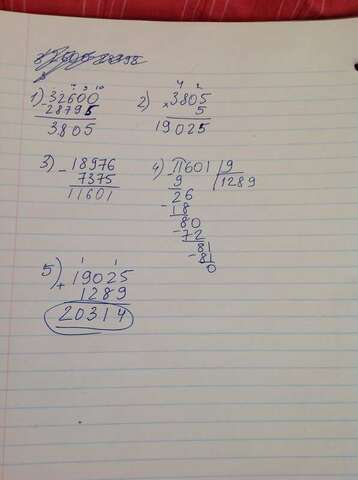 1) -32600
28795
3805
2) ×3805
5
19025
3) -18976
7375
11601
4) 11601 | 9
9 | 1289
26
-18
80
-72
81
-81
0
5) +19025
1289
20314